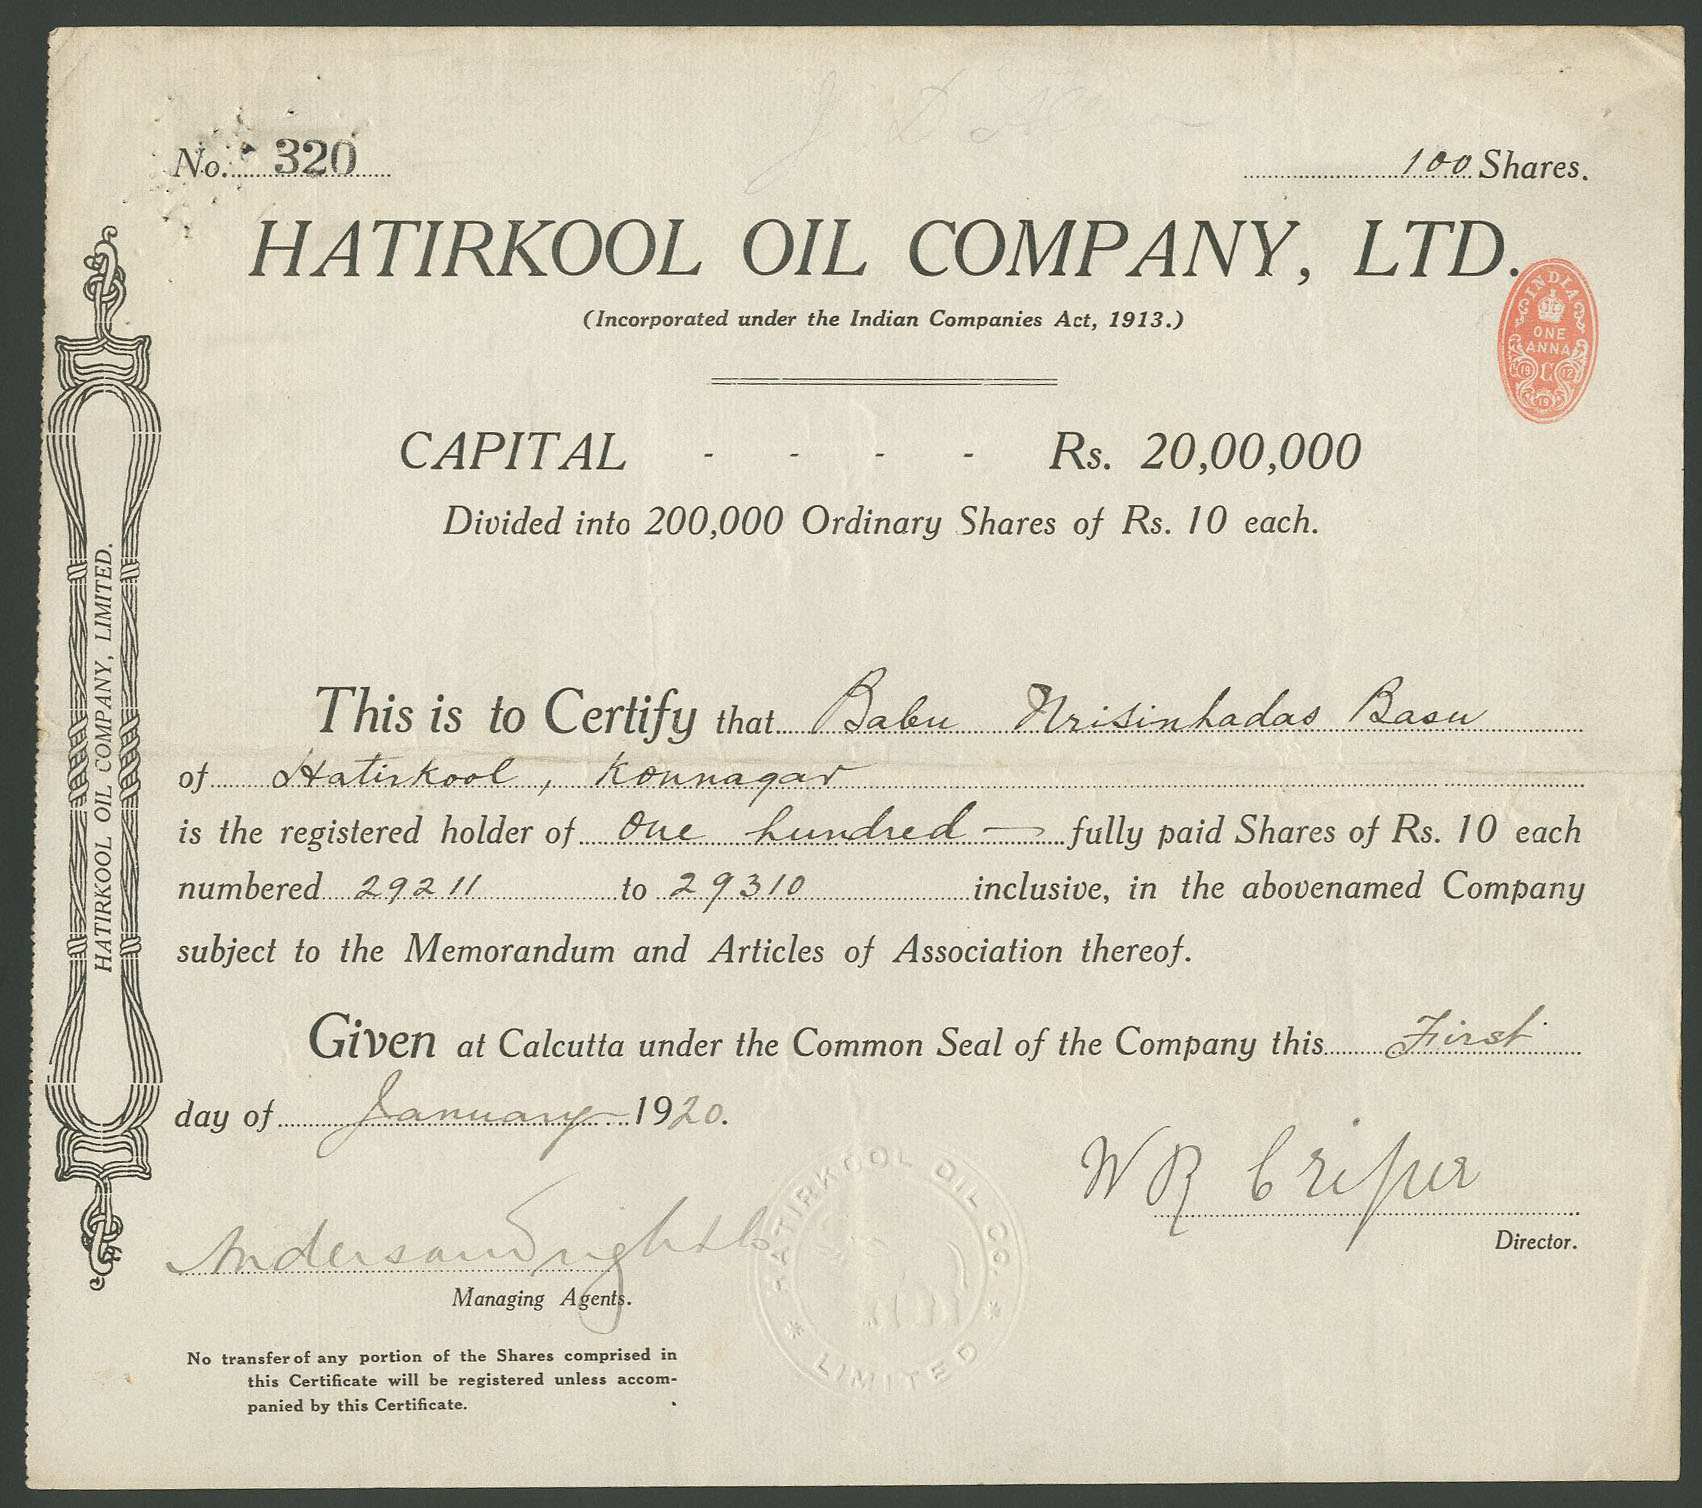 No. 320
100 Shares.
HATIRKOOL OIL COMPANY, LTD.
(Incorporated under the Indian Companies Act, 1913.)
INDIA
ONE
ANNA
19 C 12
19
CAPITAL - - - - Rs. 20,00,000
Divided into 200,000 Ordinary Shares of Rs. 10 each.
HATIRKOOL OIL COMPANY, LIMITED.
This is to Certify that Babu Nrisinhadas Basu
of Hatirkool, Konnagar
is the registered holder of One hundred — fully paid Shares of Rs. 10 each
numbered 29211 to 29310 inclusive, in the abovenamed Company
subject to the Memorandum and Articles of Association thereof.
Given at Calcutta under the Common Seal of the Company this First
day of January 1920.
W R Criper
Director.
Anderson Wright & Co
Managing Agents.
HATIRKOOL OIL CO.
* LIMITED *
No transfer of any portion of the Shares comprised in
this Certificate will be registered unless accom-
panied by this Certificate.